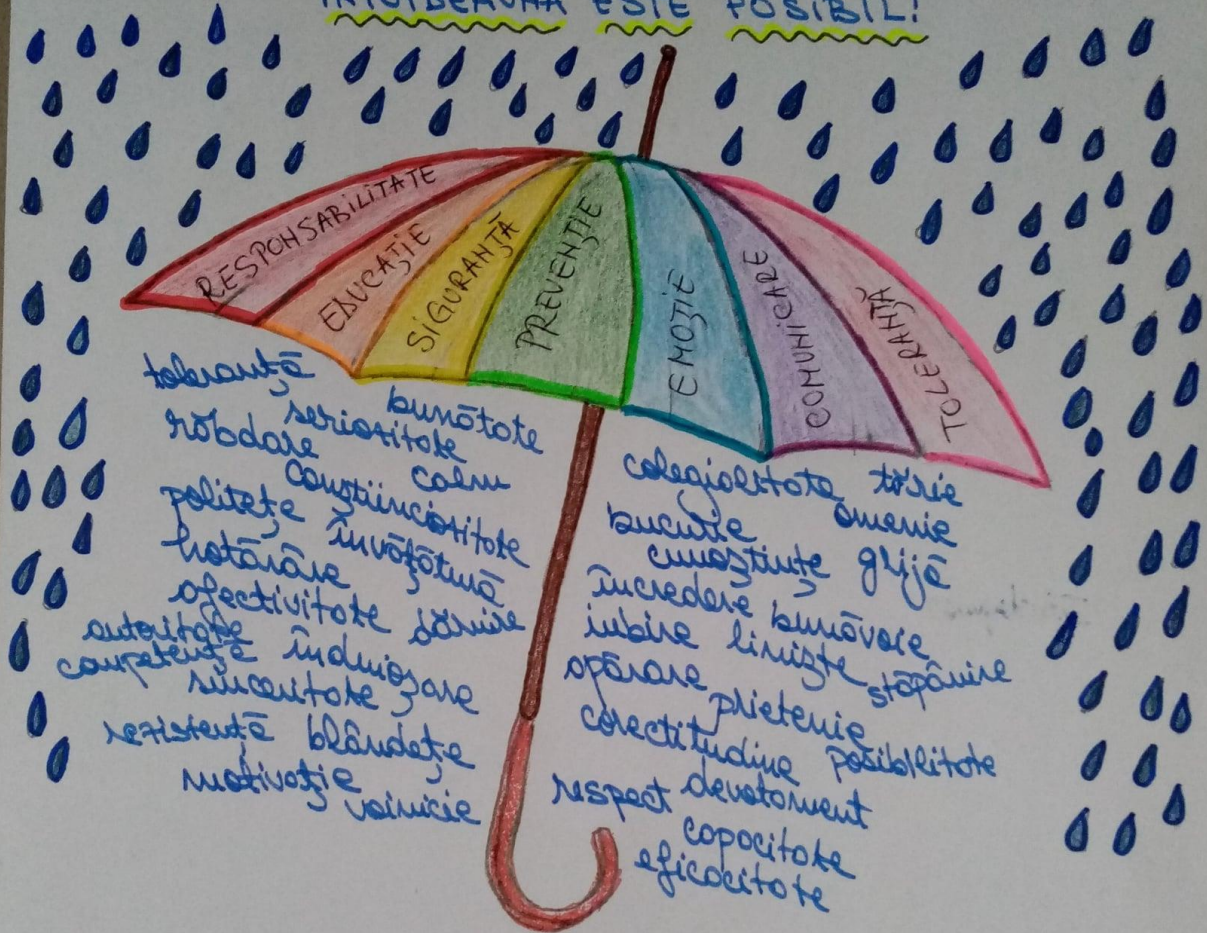 ÎNTOTDEAUNA ESTE POSIBIL!
RESPONSABILITATE
EDUCAȚIE
SIGURANȚĂ
PREVENȚIE
EMOȚIE
COMUNICARE
TOLERANȚĂ
toleranță
bunătate
seriozitate
răbdare
calm
conștiinciozitate
politețe
învățătură
hotărâre
afectivitate
dăruire
autoritate
competență
înduioșare
sinceritate
rezistență
blândețe
motivație
voinicie
colegialitate tărie
bucurie omenie
cunoștințe grijă
încredere bunăvoie
iubire liniște stăpânire
apărare prietenie
corectitudine posibilitate
respect devotament
capacitate
eficacitate